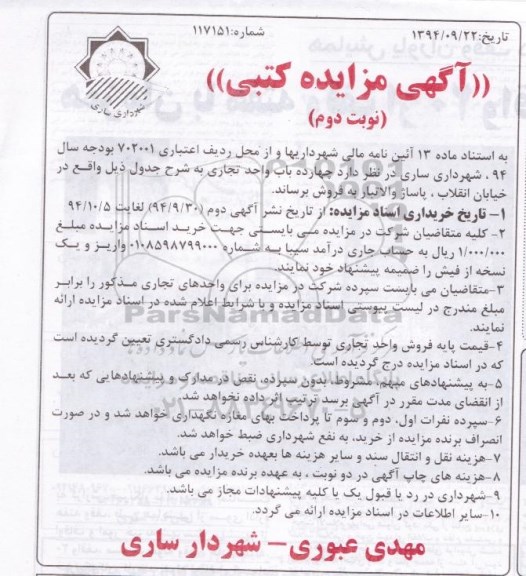 تاریخ:۱۳۹۴/۰۹/۲۲
شماره:۱۱۷۱۵۱
شهرداری ساری
((آگهی مزایده کتبی))
(نوبت دوم)
به استناد ماده ۱۳ آئین نامه مالی شهرداریها و از محل ردیف اعتباری ۷۰۲۰۰۱ بودجه سال
۹۴ ، شهرداری ساری در نظر دارد چهارده باب واحد تجاری به شرح جدول ذیل واقع در
خیابان انقلاب ، پاساژ والانیار به فروش برساند.
۱- تاریخ خریداری اسناد مزایده: از تاریخ نشر آگهی دوم (۹۴/۹/۳۰) لغایت ۹۴/۱۰/۵
۲- کلیه متقاضیان شرکت در مزایده می بایستی جهت خرید اسناد مزایده مبلغ
۱/۰۰۰/۰۰۰ ریال به حساب جاری درآمد سیبا به شماره ۰۱۰۸۵۹۸۷۹۹۰۰۰ واریز و یک
نسخه از فیش را ضمیمه پیشنهاد خود نمایند.
۳-متقاضیان می بایست سپرده شرکت در مزایده برای واحدهای تجاری مذکور را برابر
مبلغ مندرج در لیست پیوستی اسناد مزایده و با شرایط اعلام شده در اسناد مزایده ارائه
نمایند.
ParsNamadData
۴-قیمت پایه فروش واحد تجاری توسط کارشناس رسمی دادگستری تعیین گردیده است
که در اسناد مزایده درج گردیده است.
۵-به پیشنهادهای مبهم، مشروط، بدون سپرده، نقص در مدارک و پیشنهادهایی که بعد
از انقضای مدت مقرر در آگهی برسد ترتیب اثر داده نخواهد شد.
۶-سپرده نفرات اول، دوم و سوم تا پرداخت بهای مغازه نگهداری خواهد شد و در صورت
انصراف برنده مزایده از خرید، به نفع شهرداری ضبط خواهد شد.
۷-هزینه نقل و انتقال سند و سایر هزینه ها بعهده خریدار می باشد.
۸-هزینه های چاپ آگهی در دو نوبت ، به عهده برنده مزایده می باشد.
۹-شهرداری در رد یا قبول یک یا کلیه پیشنهادات مجاز می باشد.
۱۰-سایر اطلاعات در اسناد مزایده ارائه می گردد.
مهدی عبوری- شهردار ساری